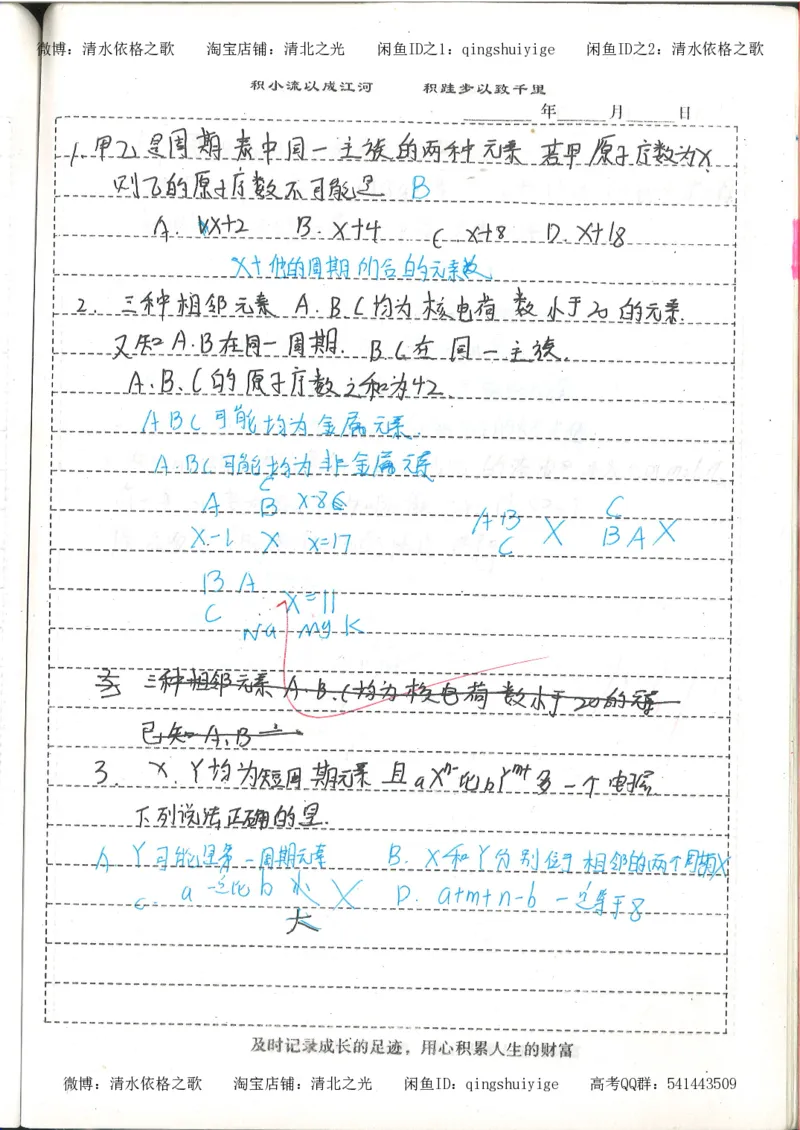 微博：清水依格之歌 淘宝店铺：清北之光 闲鱼ID之1：qingshuiyige 闲鱼ID之2：清水依格之歌
积小流以成江河 积跬步以致千里
年 月 日
1. 甲乙是周期表中同一主族的两种元素 若甲原子序数为X
则乙的原子序数不可能是 B
A. X+2 B. X+4 C. X+8 D. X+18
X+他的周期所含的元素数
2. 三种相邻元素 A.B.C均为核电荷数小于20的元素
又知A.B在同一周期. B C在同一主族.
A.B.C的原子序数之和为42.
A B C可能均为金属元素.
A.B C可能均为非金属元素
C
A B X-8
X-1 X X=17
A B X
C
C
B A X
B A
C X=11
Na Mg K
三种相邻元素 A.B.C均为核电荷数小于20的元素
已知A.B
3. X.Y均为短周期元素 且aXⁿ⁻比bYᵐ⁺多一个电子层.
下列说法正确的是.
A. Y可能是第一周期元素 B. X和Y分别位于相邻的两个周期X
C. a一定比b小 X D. a+m+n-b 一定等于8
大
及时记录成长的足迹，用心积累人生的财富
微博：清水依格之歌 淘宝店铺：清北之光 闲鱼ID：qingshuiyige 高考QQ群：541443509